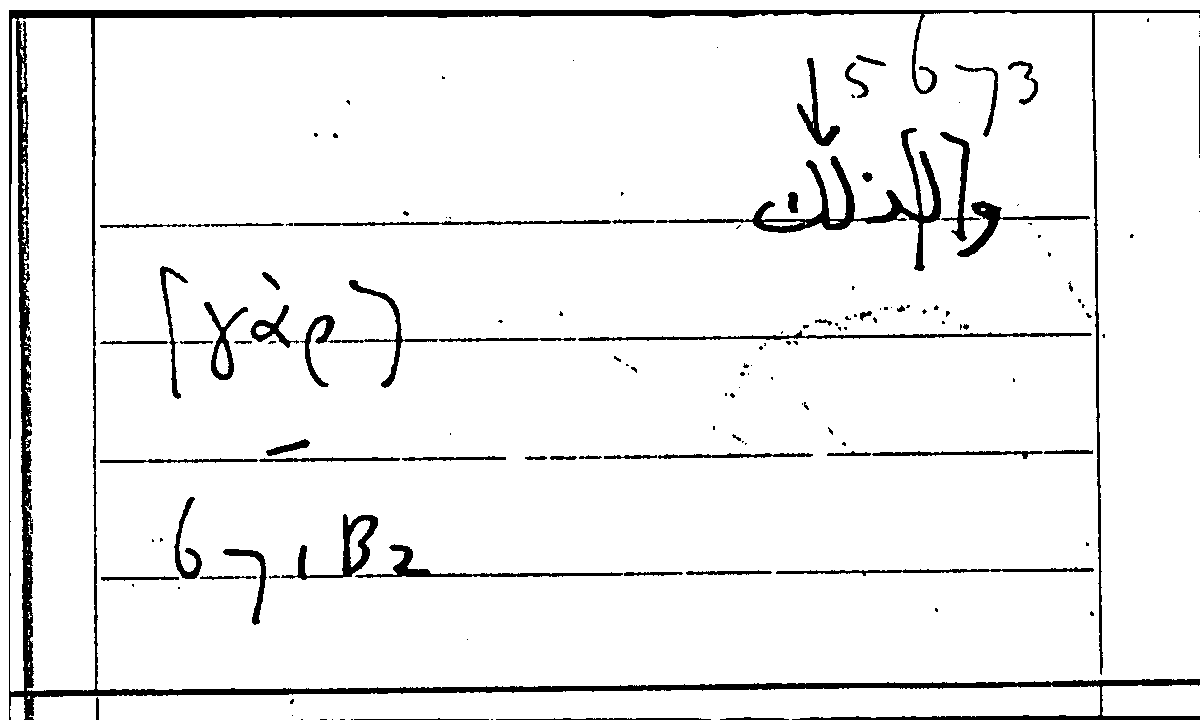 ↓ 5673
و[ا]لذلك
[γὰρ)
—
671 B2